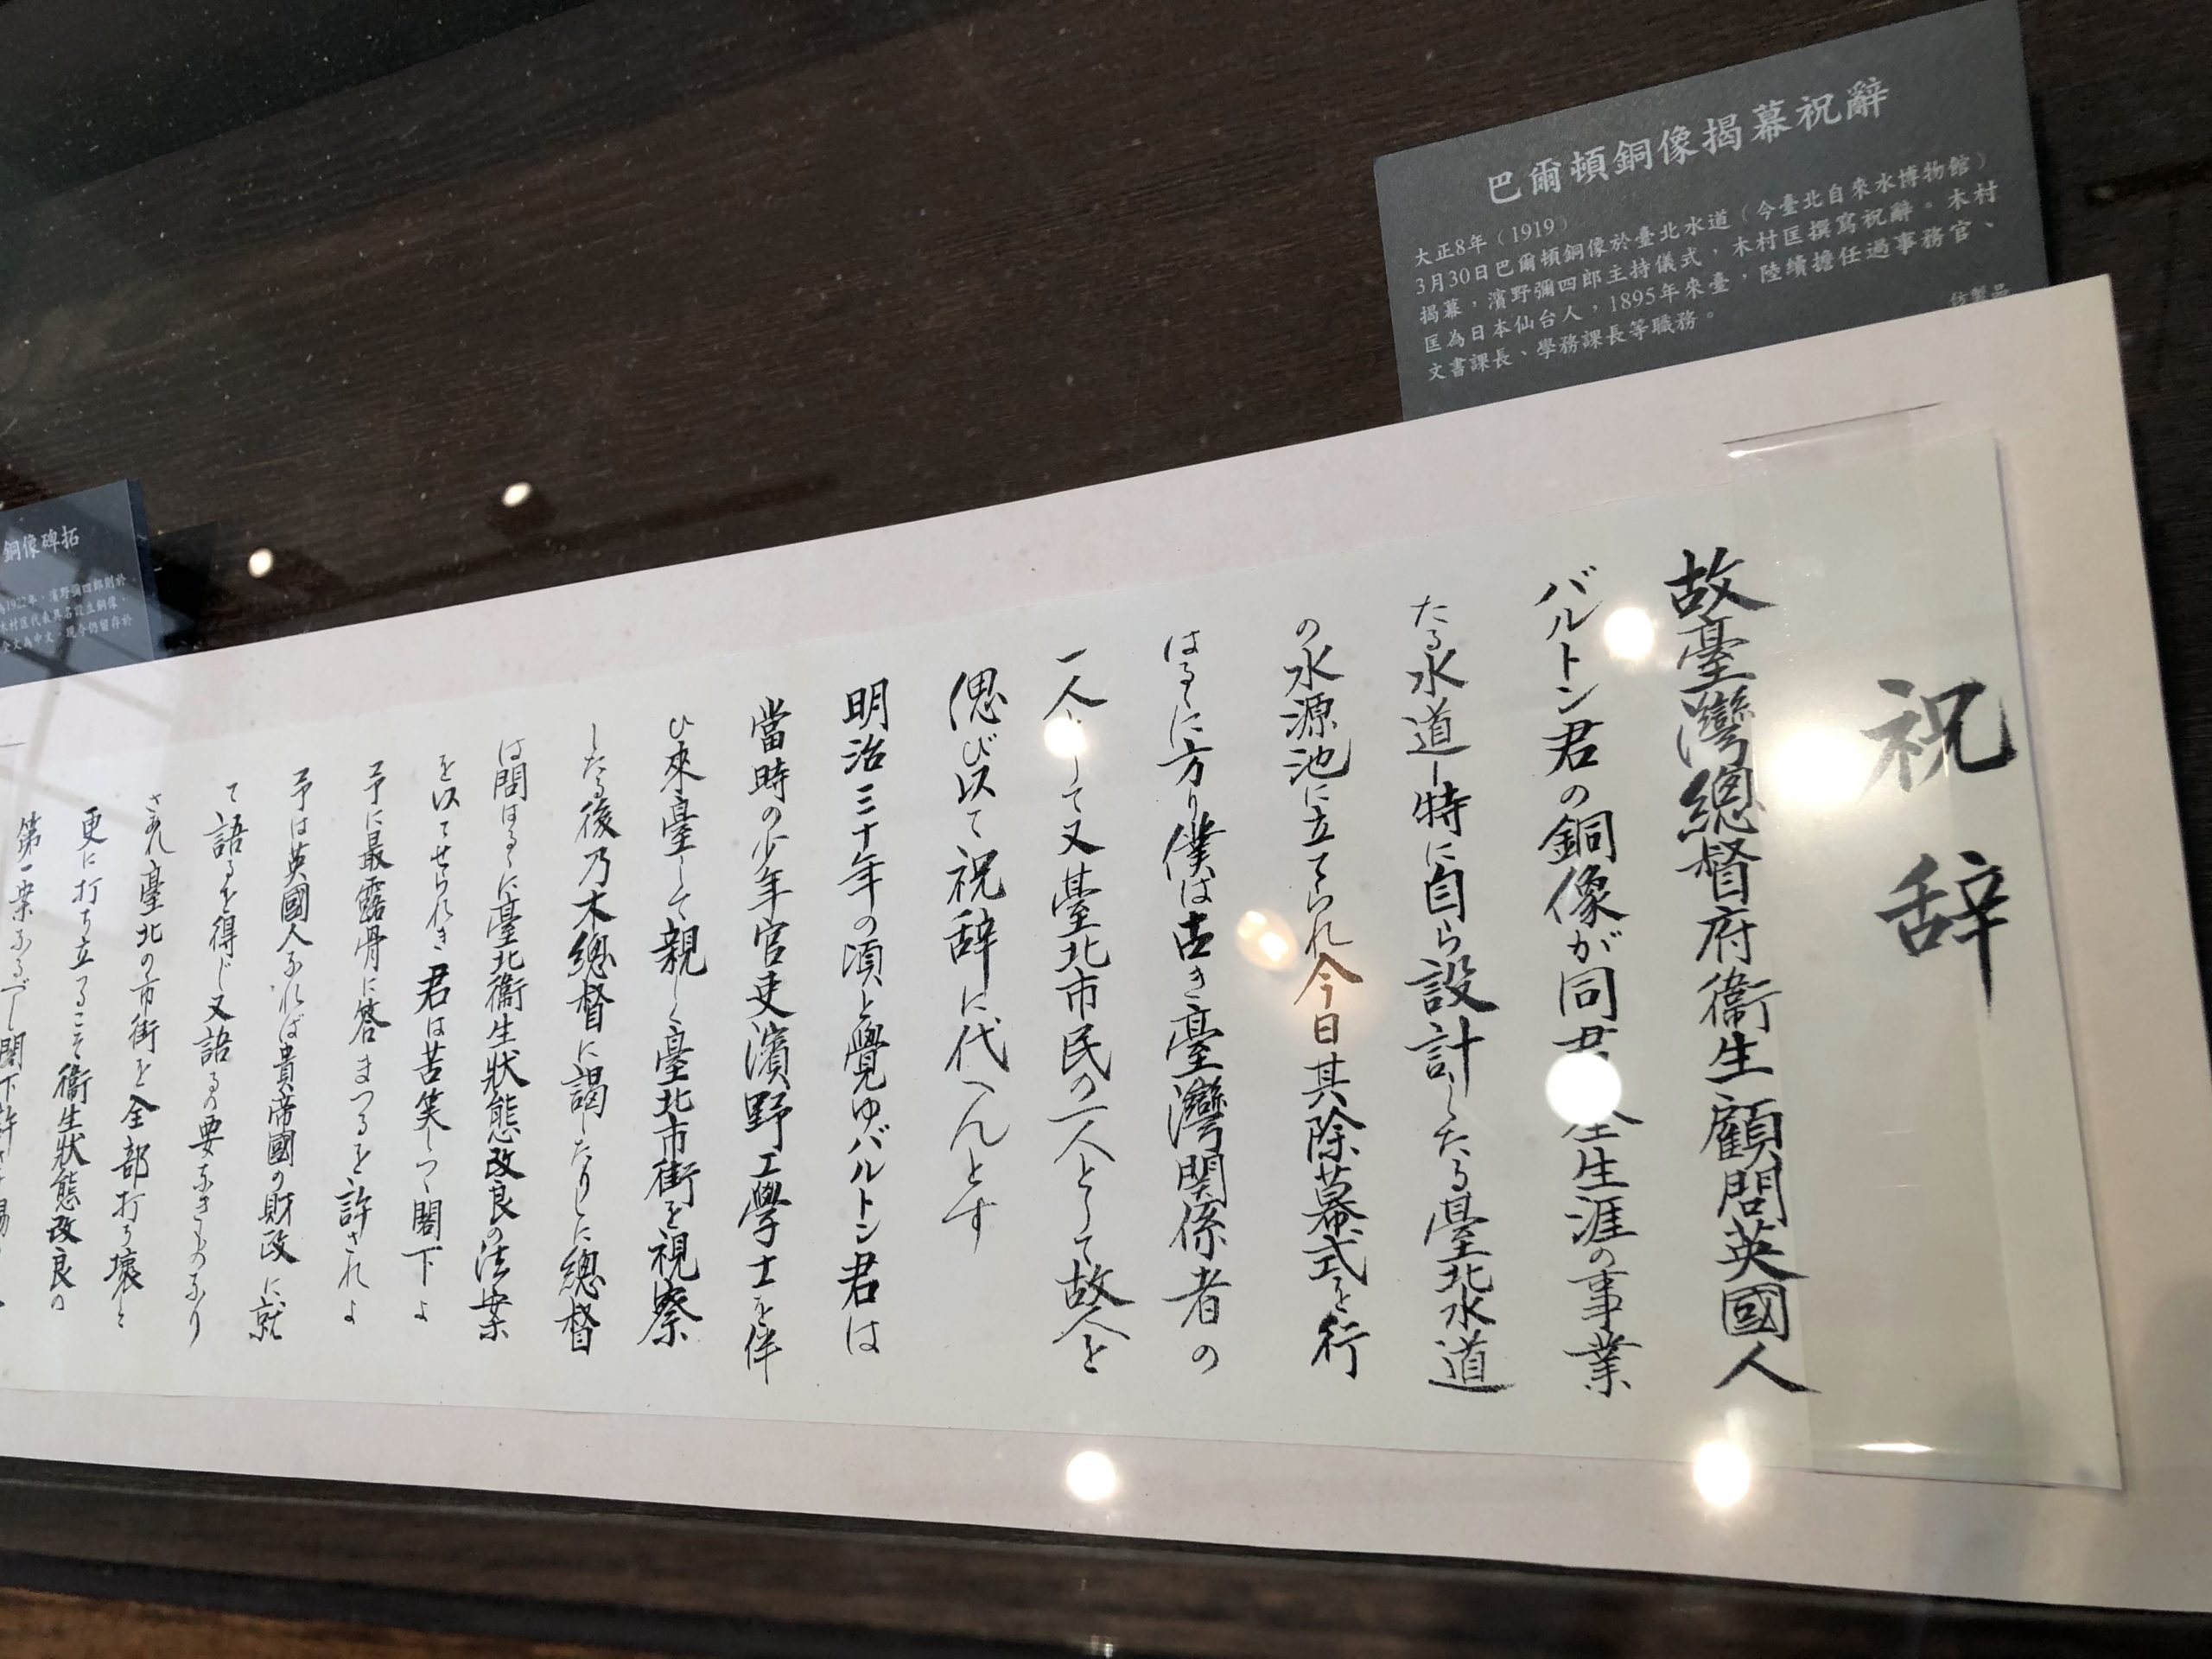 巴爾頓銅像揭幕祝辭
大正8年（1919）
3月30日巴爾頓銅像於臺北水道（今臺北自來水博物館）
揭幕，濱野彌四郎主持儀式，木村匡撰寫祝辭。木村
匡為日本仙台人，1895年來臺，陸續擔任過事務官、
文書課長、學務課長等職務。
仿製品
祝辞
故臺灣總督府衞生顧問英國人
バルトン君の銅像が同君 生涯の事業
たる水道－特に自ら設計したる臺北水道
の水源池に立てられ今日其除幕式を行
はるゝに方り僕は古き臺灣関係者の
一人として又臺北市民の一人として故人を
偲び以て祝辞に代へんとす
明治三十年の頃と覺ゆバルトン君は
當時の少年官吏濱野工學士を伴
ひ來臺して親しく臺北市街を視察
したる後乃木總督に謁したりしに總督
は問はるゝに臺北衞生狀態改良の法案
を以てせられき君は苦笑しつゝ閣下よ
予に最露骨に答まつるを許されよ
予は英國人なれば貴帝國の財政に就
て語るを得じ又語るの要なきものなり
されど臺北の市街を全部打ち壞し
更に打ち立つるこそ衞生狀態改良の
第一案なるべし閣下許
銅像碑拓
1922年，濱野彌四郎則於
木村匡代表具名設立銅像，
全文為中文，現今仍留存於